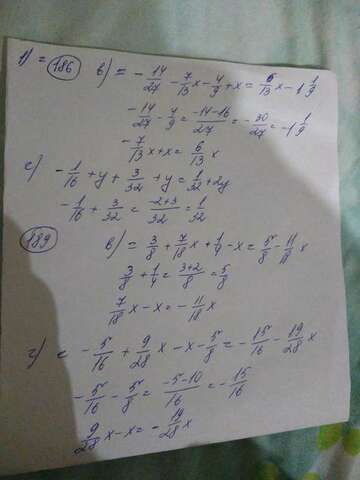 1) = 186 в) = -14/27 - 7/13 x - 4/9 + x = 6/13 x - 1 1/9
-14/27 - 4/9 = -14-16/27 = -30/27 = -1 1/9
-7/13 x + x = 6/13 x
с) -1/16 + y + 3/32 + y = 1/32 + 2y
-1/16 + 3/32 = -2+3/32 = 1/32
189 в) = 3/8 + 7/18 x + 1/4 - x = 5/8 - 11/18 x
3/8 + 1/4 = 3+2/8 = 5/8
7/18 x - x = -11/18 x
г) = -5/16 + 9/28 x - x - 5/8 = -15/16 - 19/28 x
-5/16 - 5/8 = -5-10/16 = -15/16
9/28 x - x = -19/28 x